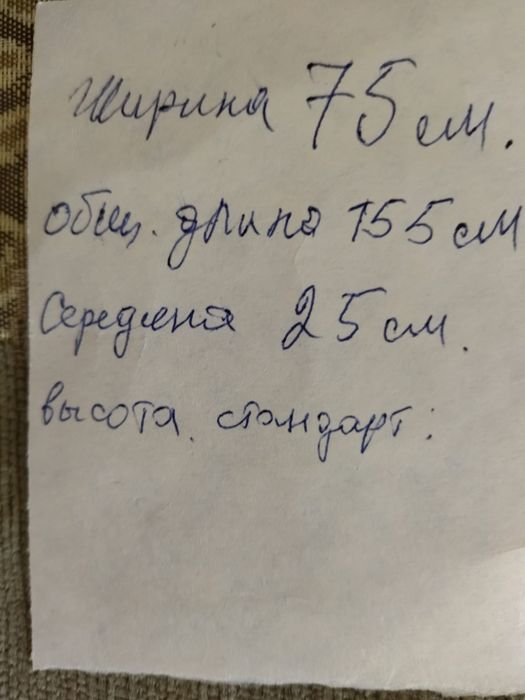 Ширина 75 см.
общ. длина 155 см
Середина 25 см.
высота. стандарт.